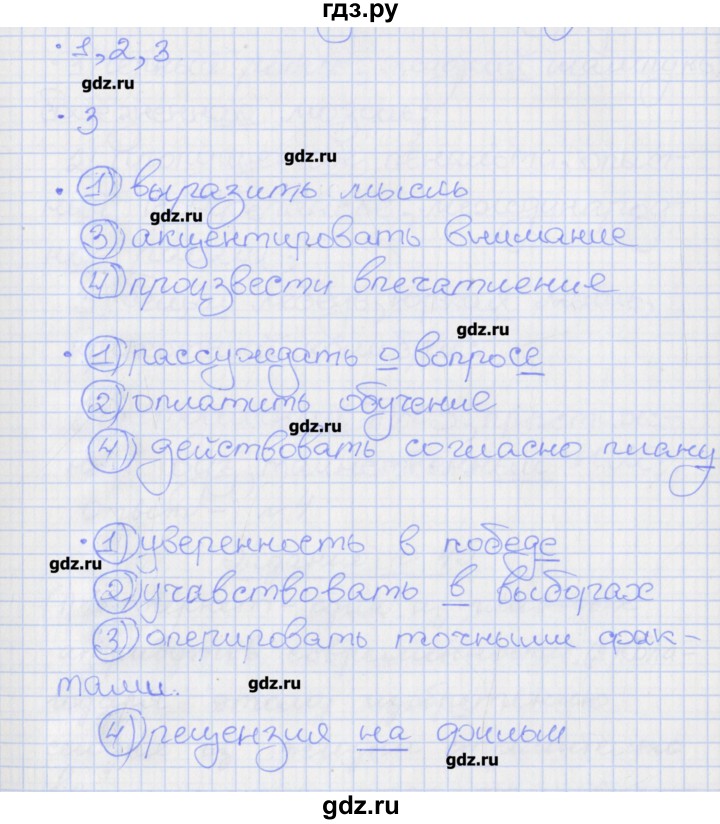 гдз.ру
· 1, 2, 3.
gdz.ru
· 3
gdz.ru
· 1) выразить мысль
gdz.ru
3) акцентировать внимание
4) произвести впечатление
gdz.ru
· 1) рассуждать о вопросе
2) оплатить обучение
gdz.ru
4) действовать согласно плану
· 1) уверенность в победе
gdz.ru
2) учавствовать в выборах
3) оперировать точными фак-
тами.
gdz.ru
4) рецензия на фильм
gdz.ru
gdz.ru